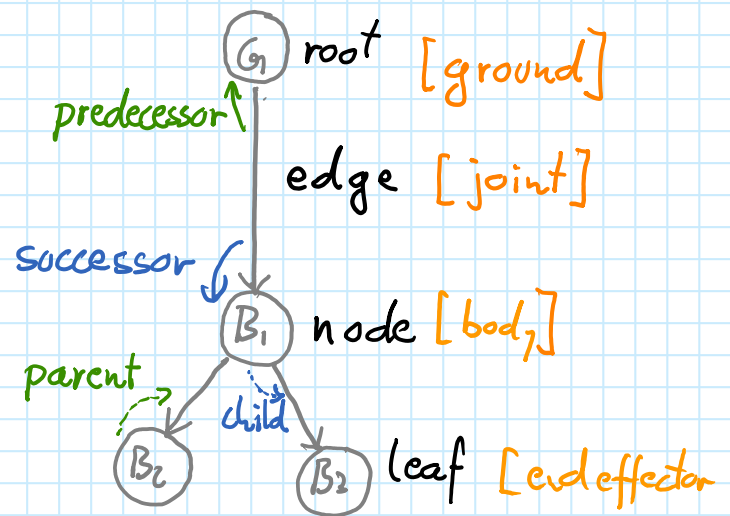 G root [ground]
predecessor
edge [joint]
successor
B1 node [body]
parent
child
B2 B2 leaf [end effector